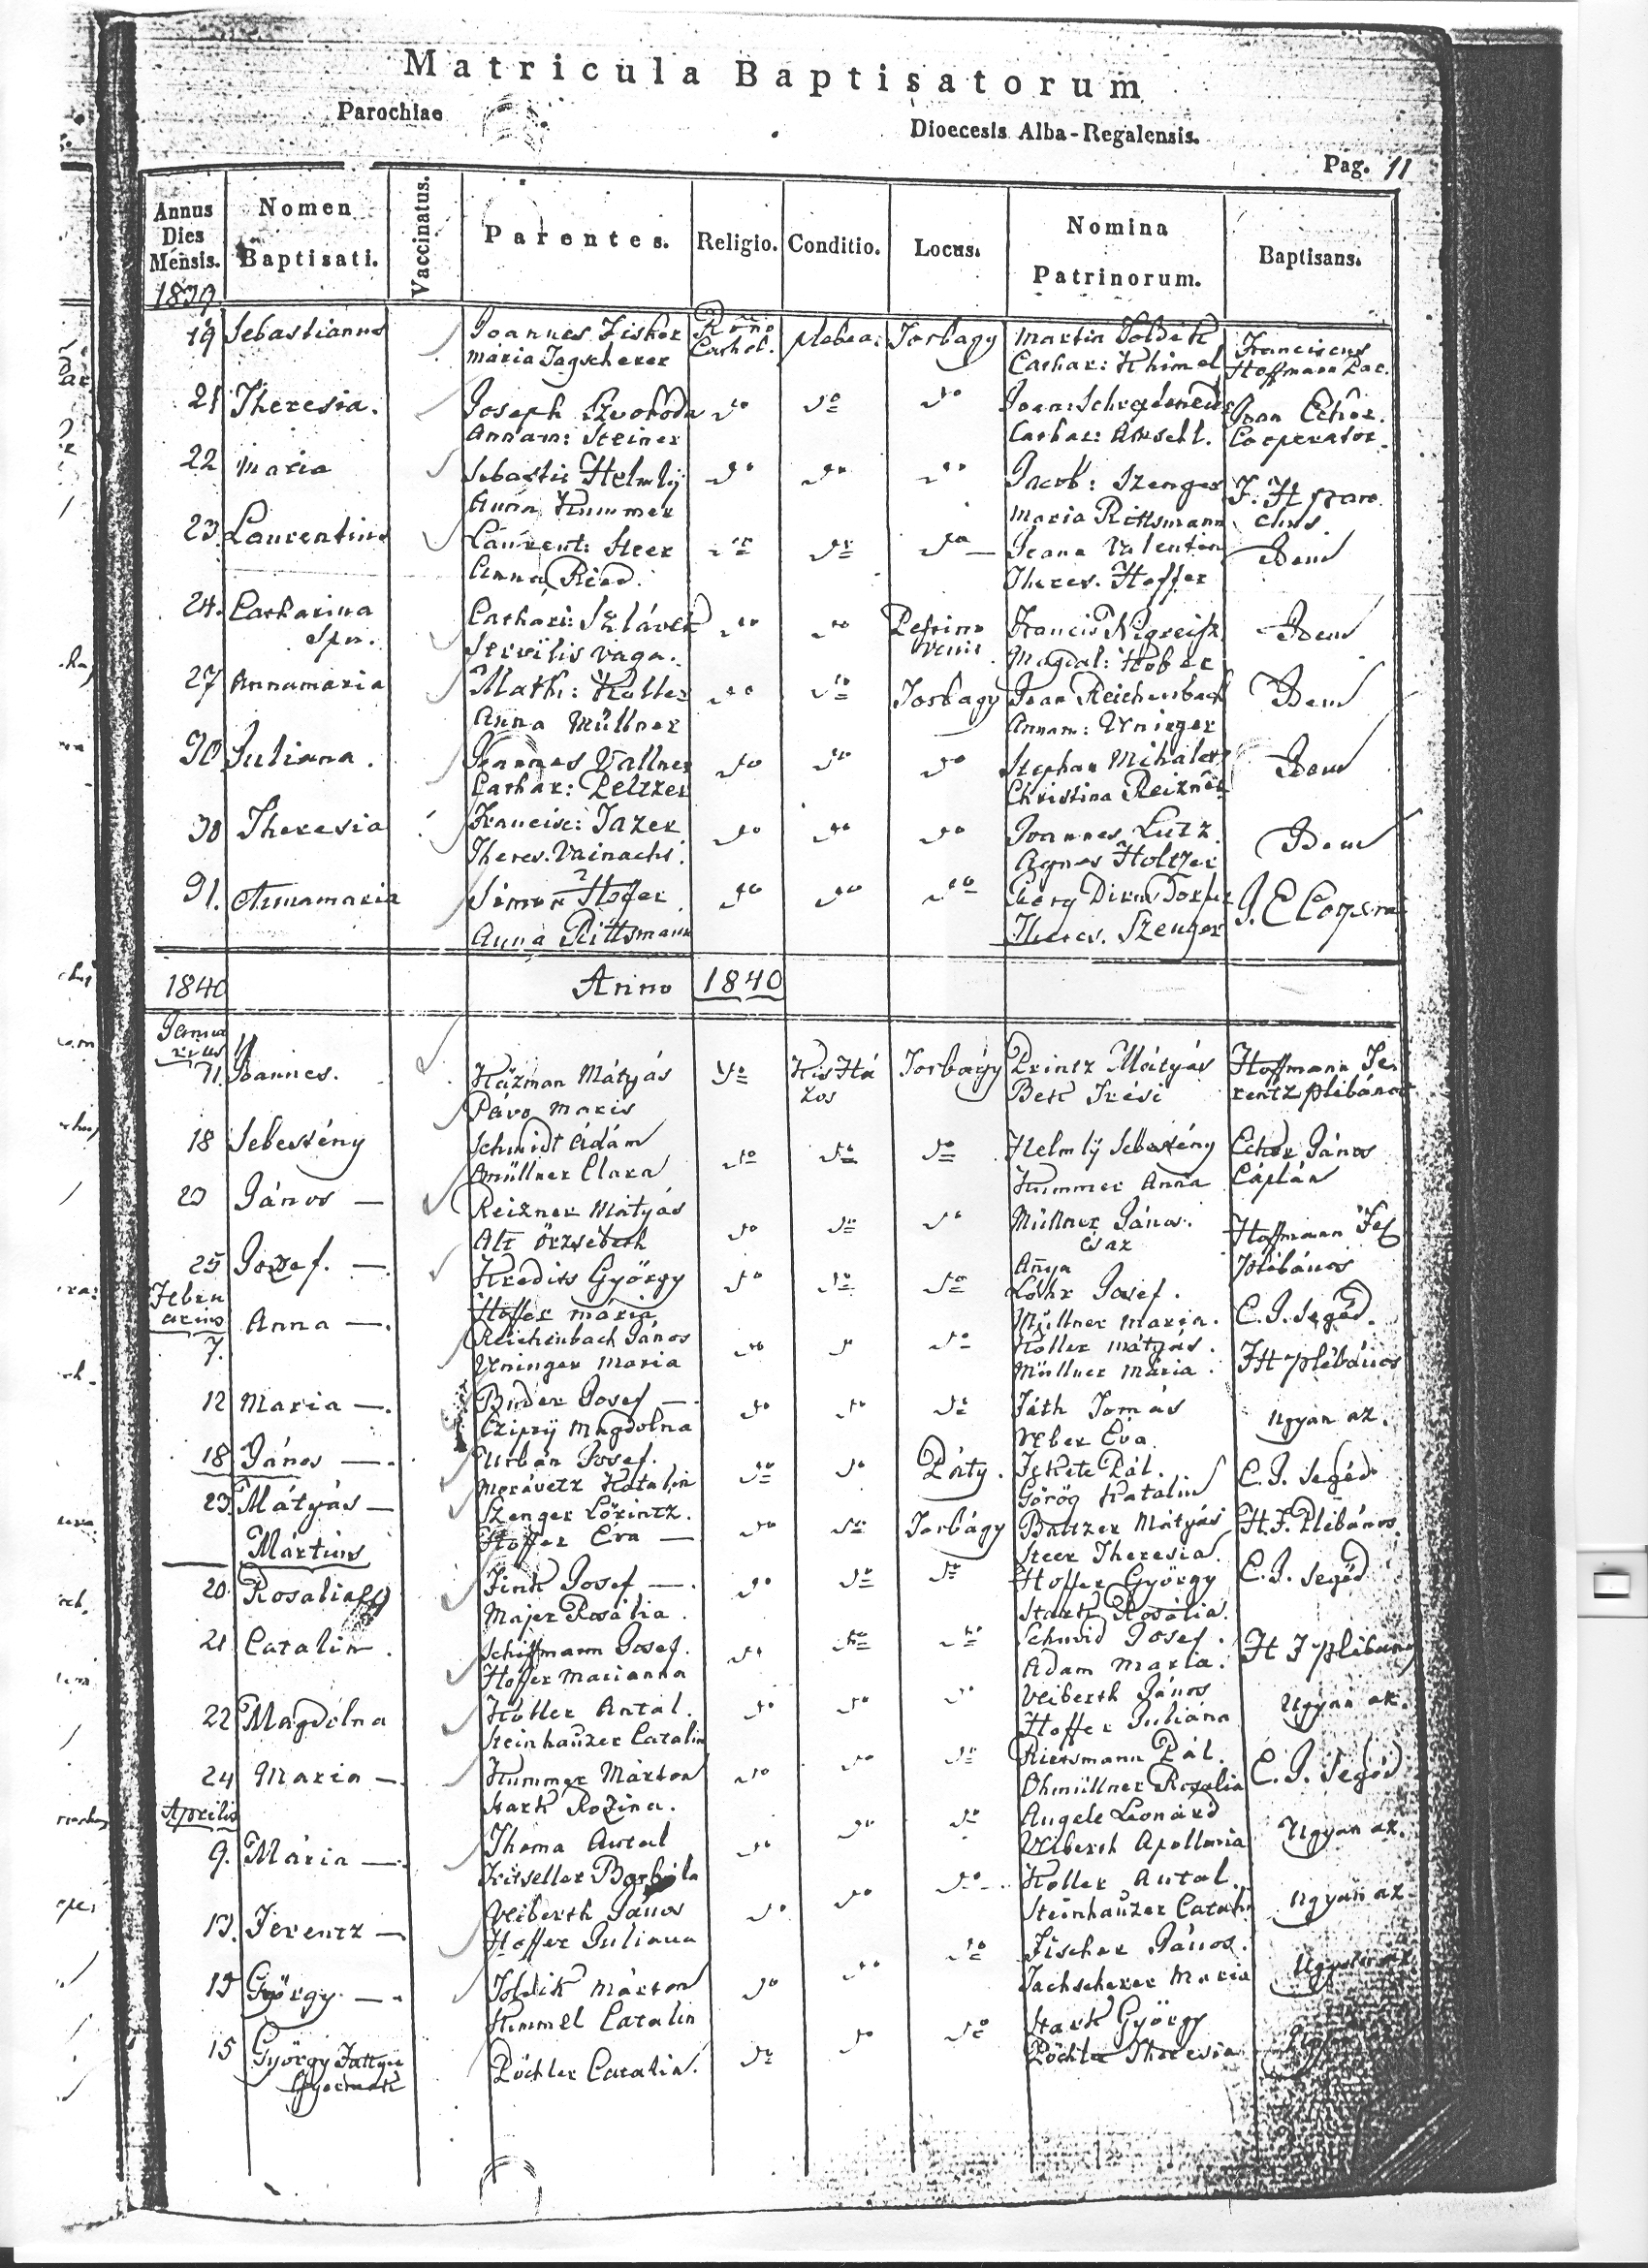 Matricula Baptisatorum
Parochiae
Dioecesis Alba-Regalensis.
Pag. 11
Annus Dies Mensis.
Nomen Baptisati.
Vaccinatus.
Parentes.
Religio.
Conditio.
Locus.
Nomina Patrinorum.
Baptisans.
1839
19 Sebastianus Joannes Fisker plebea: Torbagy Martin Toldik Franciscus
Maria Tagscherer Cathol. Cathar: Khimel Hoffmann Par.
21 Theresia. Joseph Szvoboda do do do
Annam: Steiner Cathar: Cooperator.
22 Maria Sebastis Helmlÿ do do do Jacob: Szenger F. H paro
Anna Kummer Maria Rittsmann chus.
23. Laurentius Laurent: Steer do do do Joann Valentin Idem
Anna Ried. Theres. Hoffer
24. Catharina Cathari: Szlávek do do Francis Nigreisz Idem
Spu. Servilis vaga. Magdal: Hober
27 Annamaria Math: Koller do do Torbagy Joan Reichenbach Idem
Anna Müllner Annam: Uninger
30 Juliana. Joannes Vallner do do do Stephan Mihalet Idem
Cathar: Peltzer Christina Reizner
30 Theresia Francisc: Tazer do do do Joannes Lutz Idem
Theres. Vainachs. Agnes Holtzer
31. Annamaria Simon Hofer do do do Georg Dirndorfer
Anna Rittsmann Theres. Szenger
1840 Anno 1840
Janua
rius
11. Joannes. Házman Mátyás do Kis Há Torbágy Printz Mátyás Hoffmann Fe
Pávo Maris zos Bek Trési rentz plébános
18 Sebestény Schmidt Ádám do do do Helmlÿ Sebestény Echor János
Amüllner Clara Kummer Anna Cáplán
23 János — Reizner Mátyás do do do Müllner János. Hoffmann Fe
Alt Örzsébeth és az Plébános
Anya
25 Jozsef. — Kredits György do do do Löhr Josef. C. J. Segéd.
Hoffer Maria Müllner Maria.
Febru
arius
7. Anna —. Reichenbach János do do Koller Mátyás. FH plébános
Uninger Maria Müllner Mária.
12 Maria —. Binder Josef —. do do do Táth Tomás Ugyan az.
Czipry Magdolna Veber Éva
18 János —. Urbán Josef. do do Páty. Fekete Pál. C. J. Segéd
Morávetz Katalin Görög Katalin
23. Mátyás — Szenger Lörintz. do do Torbágy Baltzer Mátyás H. F. Plébános.
Hoffer Éva — Steer Theresia.
Mártius
20. Rosalia Fink Josef —. do do do Hoffer György C. J. Segéd
Majer Rosália. Stark Rosália.
21 Catalin. Schiffmann Josef. do do do Schmid Josef. H F plébány
Hoffer Marianna Adam Maria.
22 Magdolna Koller Antal. do do do Veiberth János Ugyan az.
Steinhauzer Catalin Hoffer Juliána
24 Maria —. Kummer Márton do do do Rietsmann Pál. C. J. Segéd
Stark Rozina. Ohmüllner Rosalia
Aprilis
9. Mária —. Thoma Antal do do do Angele Leonard Ugyan az.
Kitseller Borbála Veiberth Apollonia
13. Ferentz — Veiberth János do do do Koller Antal. Ugyan az
Hoffer Juliana Steinhauzer Catalin
15 György — Toldik Márton do do do Fischer János. Ugyan az
Kimmel Catalin Tachscherer Maria
15 György Fattyu Pöchler Catalin. do do do Stark György
Gyermek Pöchler Theresia